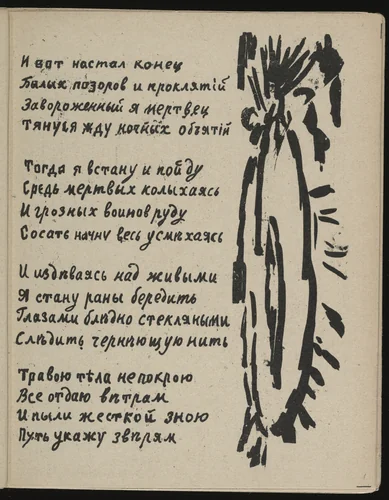 И вот настал конец
Былых позоров и проклятій
Завороженный я мертвец
Тянусь жду ночных объятій
Тогда я встану и пойду
Средь мертвых колыхаясь
И грозных воинов руду
Сосать начну весь усмѣхаясь
И издѣваясь над живыми
Я стану раны бередить
Глазами блѣдно стекляными
Слѣдить чернѣющую нить
Травою тѣла непокрою
Все отдаю вѣтрам
И пыли жесткой зною
Путь укажу звѣрям